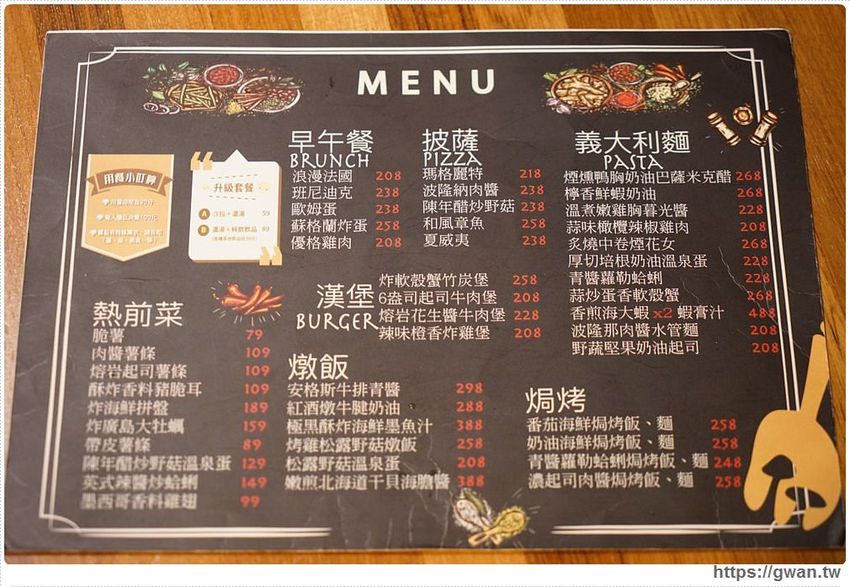 MENU
用餐小叮嚀
升級套餐
A 沙拉+濃湯 59
B 濃湯+純飲飲品 89
早午餐
BRUNCH
浪漫法國 208
班尼迪克 238
歐姆蛋 238
蘇格蘭炸蛋 258
優格雞肉 208
披薩
PIZZA
瑪格麗特 218
波隆納肉醬 238
陳年醋炒野菇 238
和風章魚 258
夏威夷 238
義大利麵
PASTA
煙燻鴨胸奶油巴薩米克醋 268
檸香鮮蝦奶油 268
溫煮嫩雞胸暮光醬 218
蒜味橄欖辣椒雞肉 208
炙燒中卷煙花女 268
厚切培根奶油溫泉蛋 228
青醬蘿勒蛤蜊 218
蒜炒蛋香軟殼蟹 268
香煎海大蝦 x2 蝦膏汁 488
波隆那肉醬水管麵 208
野蔬堅果奶油起司 208
漢堡
BURGER
炸軟殼蟹竹炭堡 258
6盎司起司牛肉堡 208
熔岩花生醬牛肉堡 228
辣味橙香炸雞堡 208
熱前菜
脆薯 79
肉醬薯條 109
熔岩起司薯條 109
酥炸香料豬脆耳 109
炸海鮮拼盤 189
炸廣島大牡蠣 159
帶皮薯條 89
陳年醋炒野菇溫泉蛋 129
英式辣醬炒蛤蜊 149
墨西哥香料雞翅 99
燉飯
安格斯牛排青醬 298
紅酒燉牛腱奶油 288
極黑酥炸海鮮墨魚汁 388
烤雞松露野菇燉飯 258
松露野菇溫泉蛋 208
嫩煎北海道干貝海膽醬 388
焗烤
番茄海鮮焗烤飯、麵 258
奶油海鮮焗烤飯、麵 258
青醬蘿勒蛤蜊焗烤飯、麵 248
濃起司肉醬焗烤飯、麵 258
https://gwan.tw